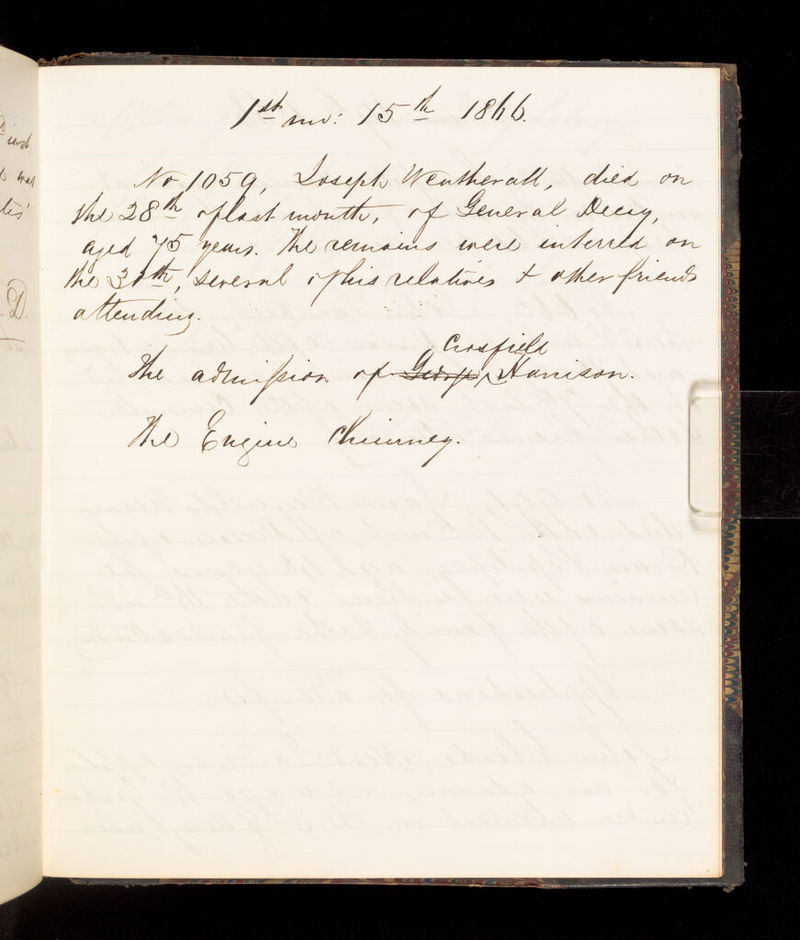 1st mo: 15th 1866.
No 1059, Joseph Weatherall, died on
the 28th of last month, of General Decay,
aged 75 years. The remains were interred on
the 30th, several of his relatives & other friends
attending.
Crosfield
The admission of George Harrison.
The Engine Chimney.
inst
D.